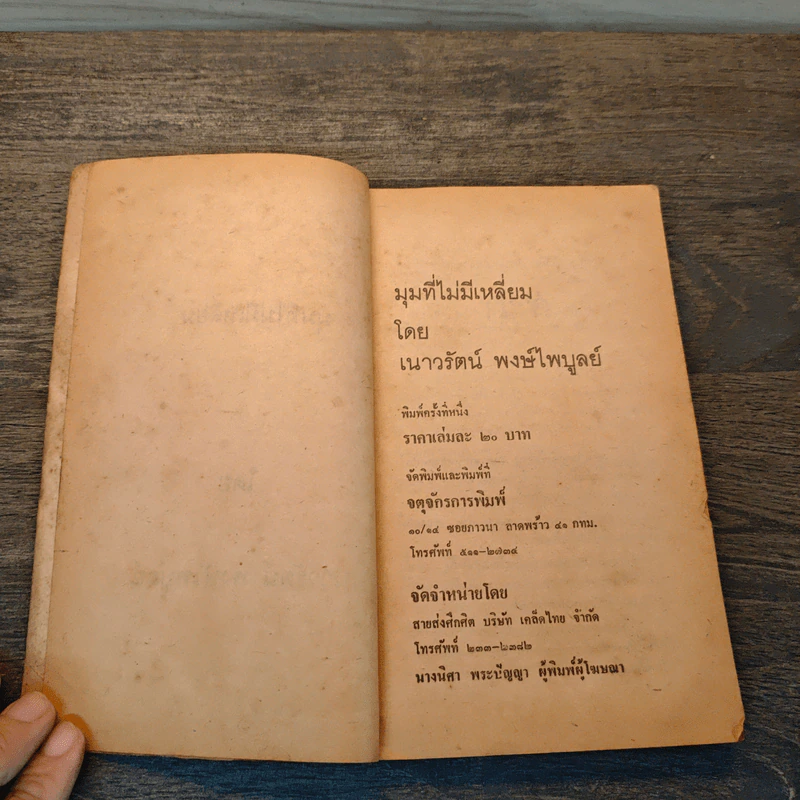 มุมที่ไม่มีเหลี่ยม
โดย
เนาวรัตน์ พงษ์ไพบูลย์
พิมพ์ครั้งที่หนึ่ง
ราคาเล่มละ ๒๐ บาท
จัดพิมพ์และพิมพ์ที่
จตุจักรการพิมพ์
๑๐/๑๔ ซอยภาวนา ลาดพร้าว ๔๑ กทม.
โทรศัพท์ ๕๑๑-๒๗๓๔
จัดจำหน่ายโดย
สายส่งศึกษิต บริษัท เคล็ดไทย จำกัด
โทรศัพท์ ๒๓๓-๖๓๘๒
นางนิศา พระปัญญา ผู้พิมพ์ผู้โฆษณา